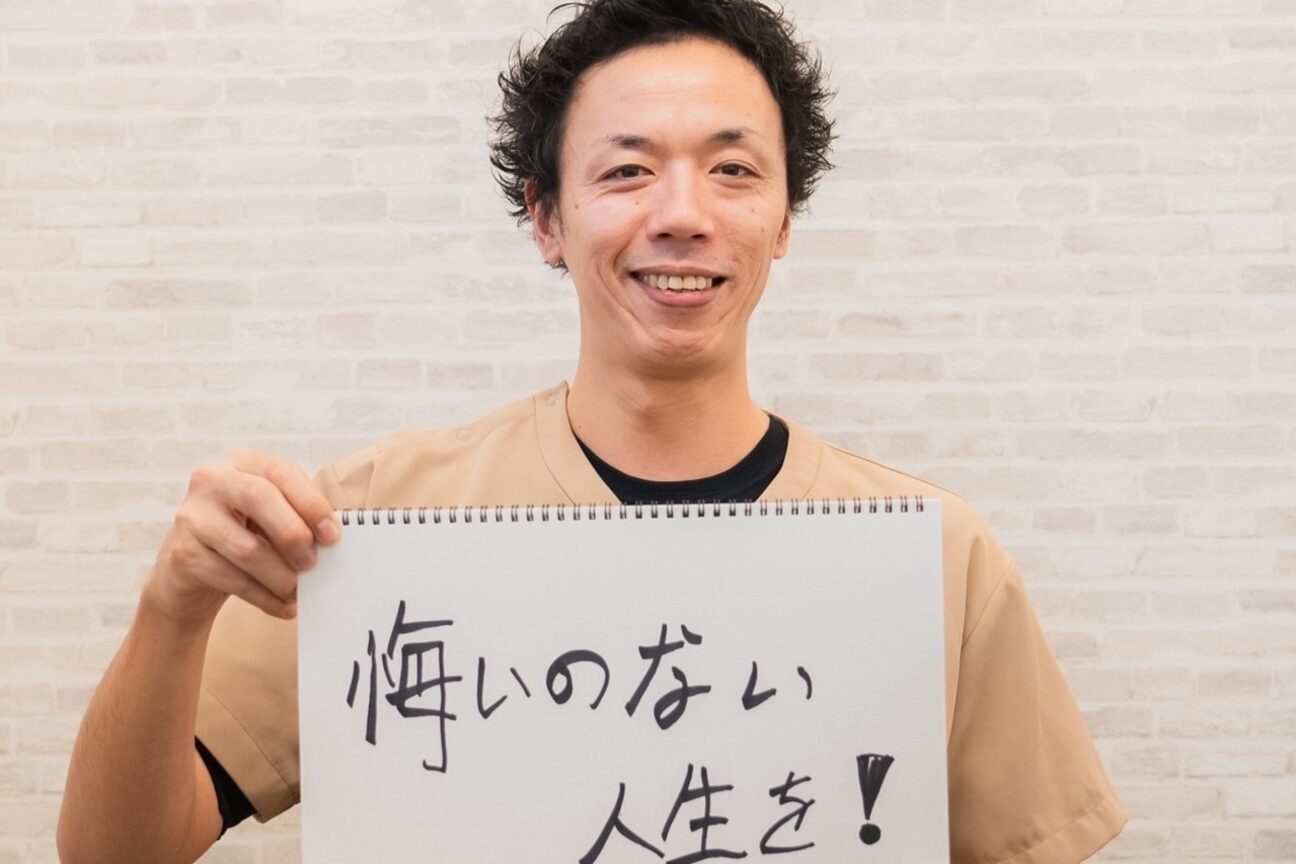 悔いのない
人生を!